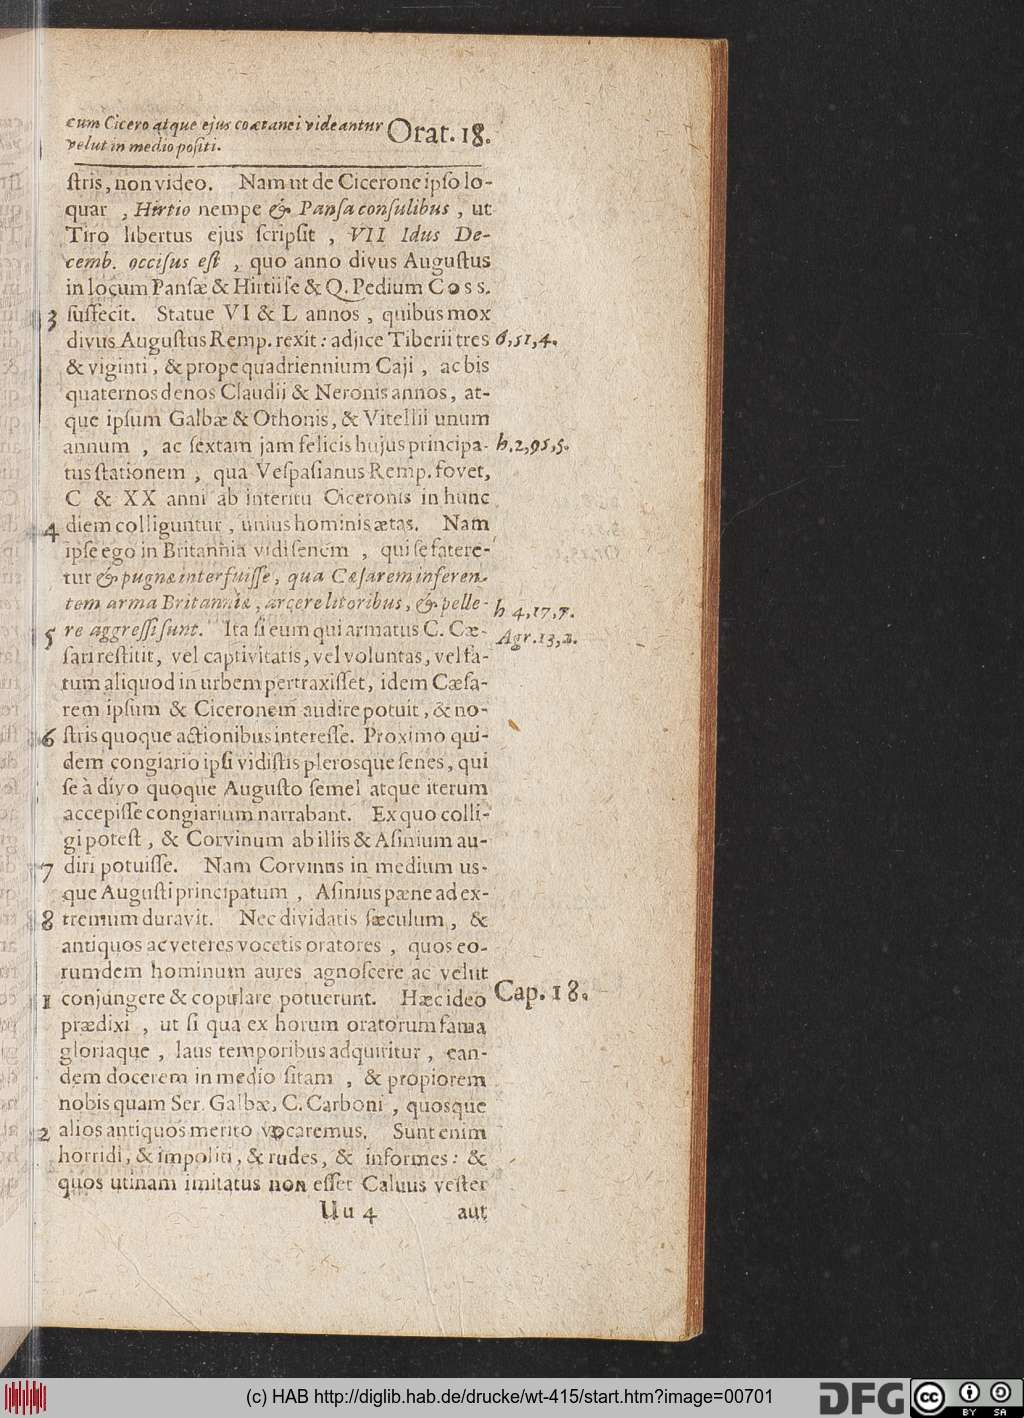 cum Cicero atque ejus coætanei videantur Orat. 18.
velut in medio positi.
ſtris, non video. Nam ut de Cicerone ipſo lo-
quar , Hirtio nempe & Panſa conſulibus , ut
Tiro libertus ejus ſcripſit , VII Idus De-
cemb. occiſus eſt , quo anno divus Auguſtus
in locum Panſæ & Hirtii ſe & Q. Pedium Coss.
3 ſuffecit. Statue VI & L annos , quibus mox
divus Auguſtus Remp. rexit : adjice Tiberii tres 6,51,4.
& viginti , & prope quadriennium Caji , ac bis
quaternos denos Claudii & Neronis annos, at-
que ipſum Galbæ & Othonis, & Vitellii unum
annum , ac ſextam jam felicis hujus principa- h.2,95,5.
tus ſtationem , qua Veſpaſianus Remp. fovet,
C & XX anni ab interitu Ciceronis in hunc
4 diem colliguntur , unius hominis ætas. Nam
ipſe ego in Britannia vidi ſenem , qui ſe fatere-
tur & pugnæ interfuiſſe, qua Cæſarem inferen-
tem arma Britanniæ, arcere litoribus, & pelle- h 4,17,7.
5 re aggreſſi ſunt. Ita ſi eum qui armatus C. Cæ- Agr.13,2.
ſari reſtitit, vel captivitatis, vel voluntas, vel fa-
tum aliquod in urbem pertraxiſſet, idem Cæſa-
rem ipſum & Ciceronem audire potuit, & no-
6 ſtris quoque actionibus intereſſe. Proximo qui-
dem congiario ipſi vidiſtis plerosque ſenes, qui
ſe à divo quoque Auguſto ſemel atque iterum
accepiſſe congiarium narrabant. Ex quo colli-
gi poteſt , & Corvinum ab illis & Aſinium au-
7 diri potuiſſe. Nam Corvinus in medium us-
que Auguſti principatum , Aſinius pæne ad ex-
8 tremum duravit. Nec dividatis ſæculum , &
antiquos ac veteres vocetis oratores , quos eo-
rumdem hominum aures agnoſcere ac velut
1 conjungere & copulare potuerunt. Hæc ideo Cap. 18.
prædixi , ut ſi qua ex horum oratorum fama
gloriaque , laus temporibus adquiritur , ean-
dem docerem in medio ſitam , & propiorem
nobis quam Ser. Galbæ, C. Carboni , quosque
2 alios antiquos merito vocaremus. Sunt enim
horridi, & impoliti, & rudes, & informes : &
quos utinam imitatus non eſſet Calvus veſter
Uu 4 aut
(c) HAB http://diglib.hab.de/drucke/wt-415/start.htm?image=00701
DFG
cc BY SA